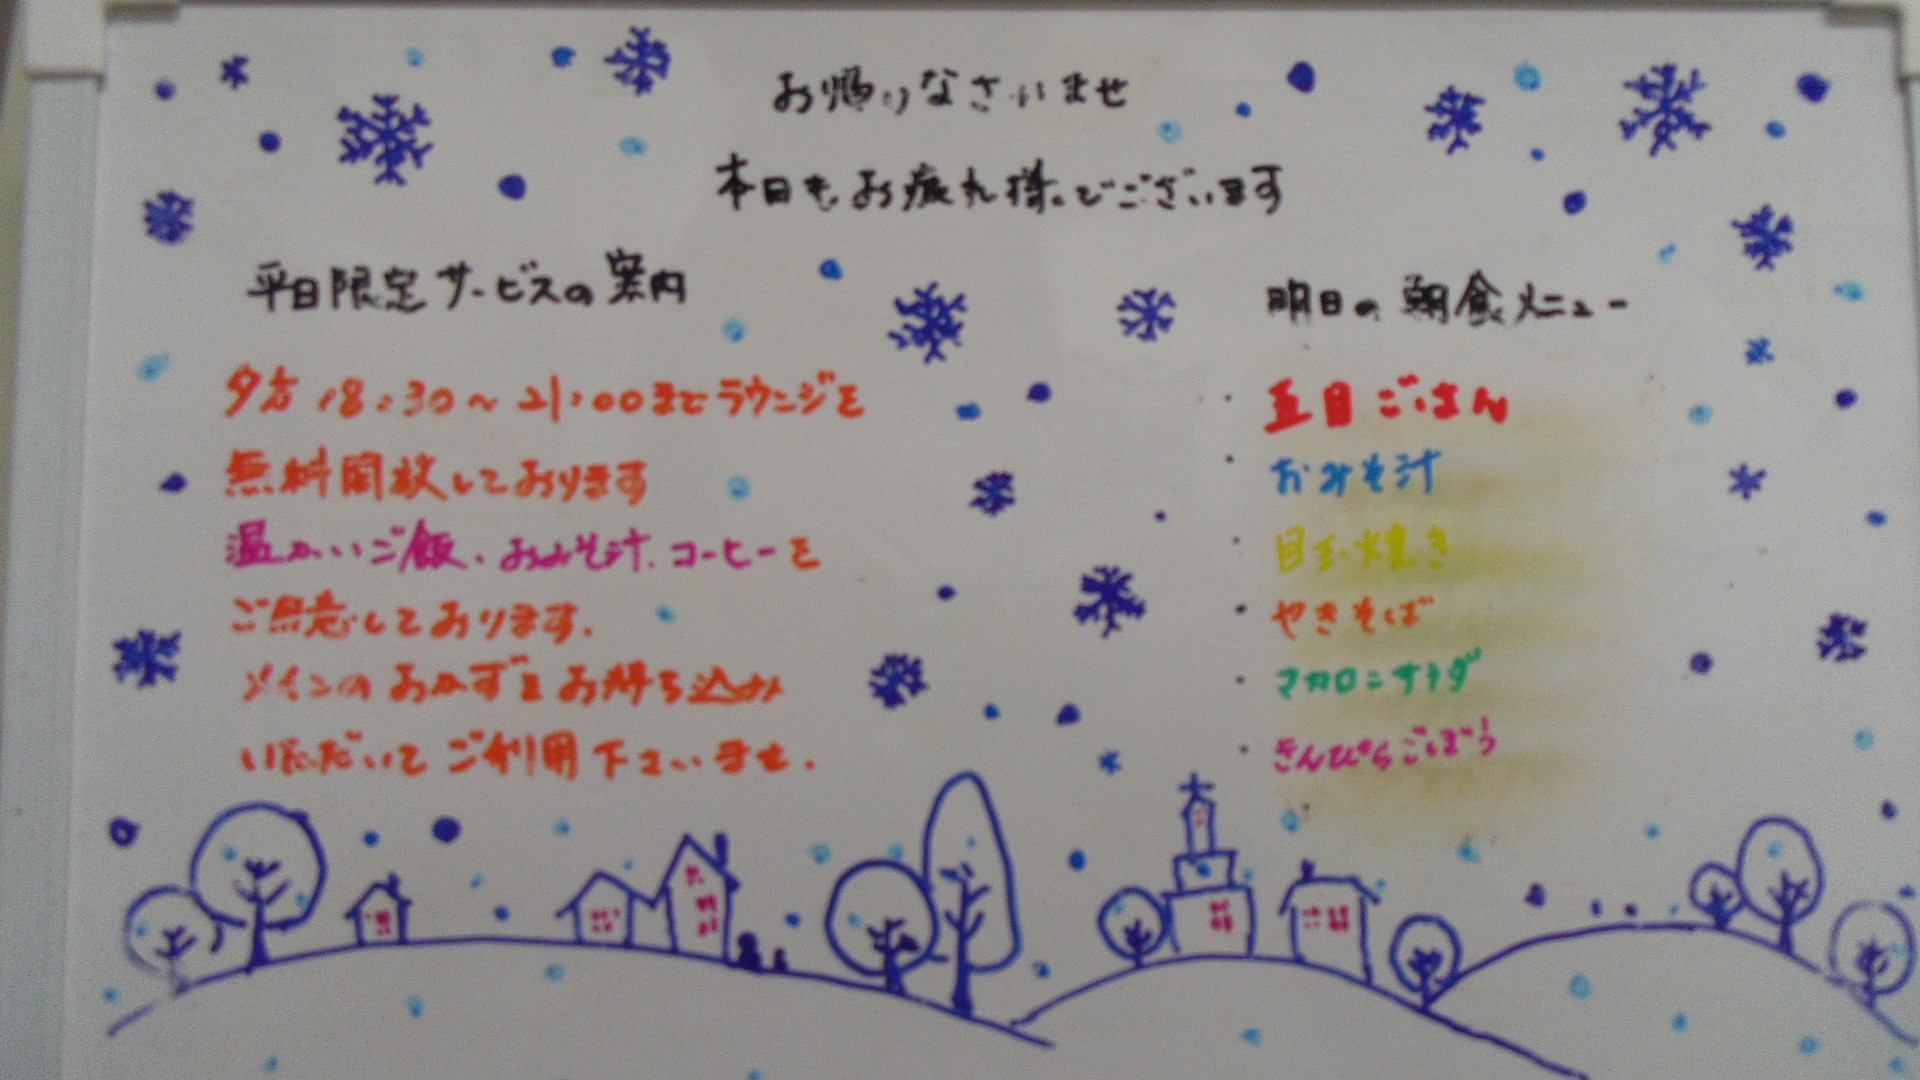 お帰りなさいませ
本日もお疲れ様でございます
平日限定サービスの案内
夕方18:30～21:00までラウンジを
無料開放しております
温かいご飯、おみそ汁、コーヒーを
ご用意しております.
メインのおかずをお持ち込み
いただいてご利用下さいませ.
明日の朝食メニュー
・五目ごはん
・おみそ汁
・目玉焼き
・やきそば
・マカロニサラダ
・きんぴらごぼう